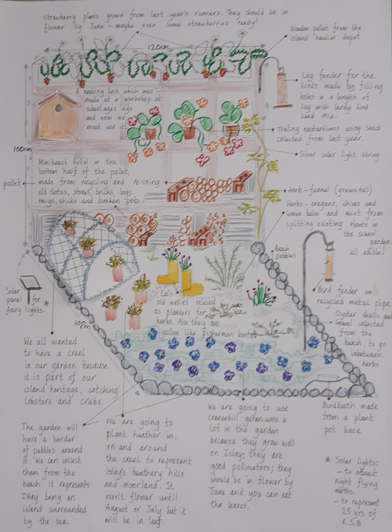 strawberry plants grown from last year's runners. They should be in
flower by June - maybe even some strawberries ready!
120cm
Wooden pallet from the
island
depot
Log feeder for the
birds made by filling
holes in a length of
log with
bird
seed mix.
nesting box which was
made at a workshop at
school ages ago
and now we
must use it!
Trailing nasturtiums using seeds
collected from last year.
100cm
Solar light string
Minibeast hotel in the
bottom half of the pallet,
made from recycling and re-using
old slates, straw, bricks, logs
twigs, sticks and broken pots
pallet
Herb - fennel (grows tall)
Herbs - oregano, chives and
lemon balm and mint from
splitting existing plants
in the school
garden.
all edible!
Beach
pebbles
Solar
panel
for
fairy lights.
old wellies reused
as planters for
herbs. Also they are
yellow like fisherman boots
Bird feeder on
recycled metal pipe
Oyster shells and
mussel
from the
beach, to go
inbetween
herbs
We all wanted
to have a creel
in our garden because
it is part of our
island heritage, catching
lobsters and crabs.
Birdbath made
from a plant
pot base
The garden will
have a border
of pebbles around
it. We can collect
them from the
beach & it represents
Islay being an
island surrounded
by the sea.
We are going to
plant heather in,
on and around
the creel to represent
Islay's heathery hills
and moorland. It
won't flower until
August or July but it
will be in leaf
We are going to use
cranesbill geraniums a
lot in the garden
because they grow well
on Islay; they are
good pollinators; they
should be in flower by
June and you can eat
the leaves.
* Solar lights:
- to attract
night flying
moths
- to represent
25 yrs of
K.S.B